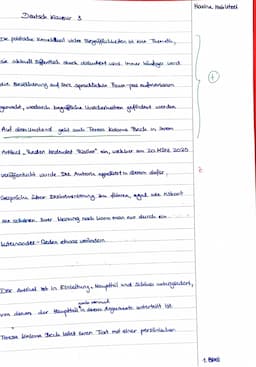 Deutsch Klausur 3
Die politische Korrektheit unter Begrifflichkeiten ist eine Thematik,
die aktuell öffentlich stark diskutiert wird. Immer häufiger wird
die Bevölkerung auf ihre sprachlichen Faux-pas aufmerksam
gemacht, wodurch begriffliche Unsicherheiten gefördert werden.
Auf diesen Umstand geht auch Teresa Koloma Beck in ihrem
Artikel „Reden bedeutet Risiko" ein, welcher am 20. März 2020
veröffentlicht wurde. Die Autorin appelliert in diesem dafür,
Gespräche über Diskriminierung zu führen, egal wie
sie scheinen. Ihrer Meinung nach kann man nur durch ein
Miteinander-Reden etwas verändern.
Der Artikel ist in Einleitung, Hauptteil und Schluss untergliedert,
von denen der Hauptteil in diesem Argumente unterteilt ist.
Teresa Koloma Beck leitet ihren Text mit einer persönlichen